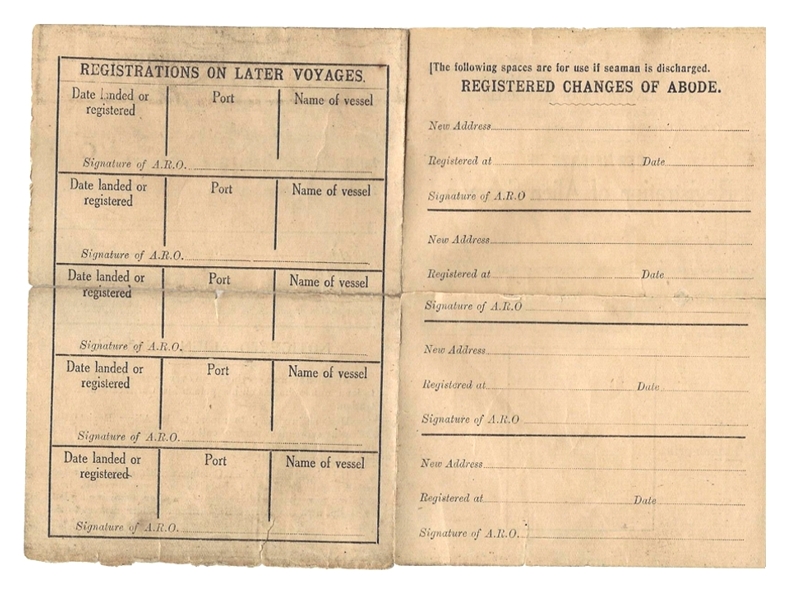 REGISTRATIONS ON LATER VOYAGES.
Date landed or registered Port Name of vessel
Signature of A.R.O.
Date landed or registered Port Name of vessel
Signature of A.R.O.
Date landed or registered Port Name of vessel
Signature of A.R.O.
Date landed or registered Port Name of vessel
Signature of A.R.O.
Date landed or registered Port Name of vessel
Signature of A.R.O.
[The following spaces are for use if seaman is discharged.
REGISTERED CHANGES OF ABODE.
New Address
Registered at Date
Signature of A.R.O
New Address
Registered at Date
Signature of A.R.O
New Address
Registered at Date
Signature of A.R.O
New Address
Registered at Date
Signature of A.R.O.